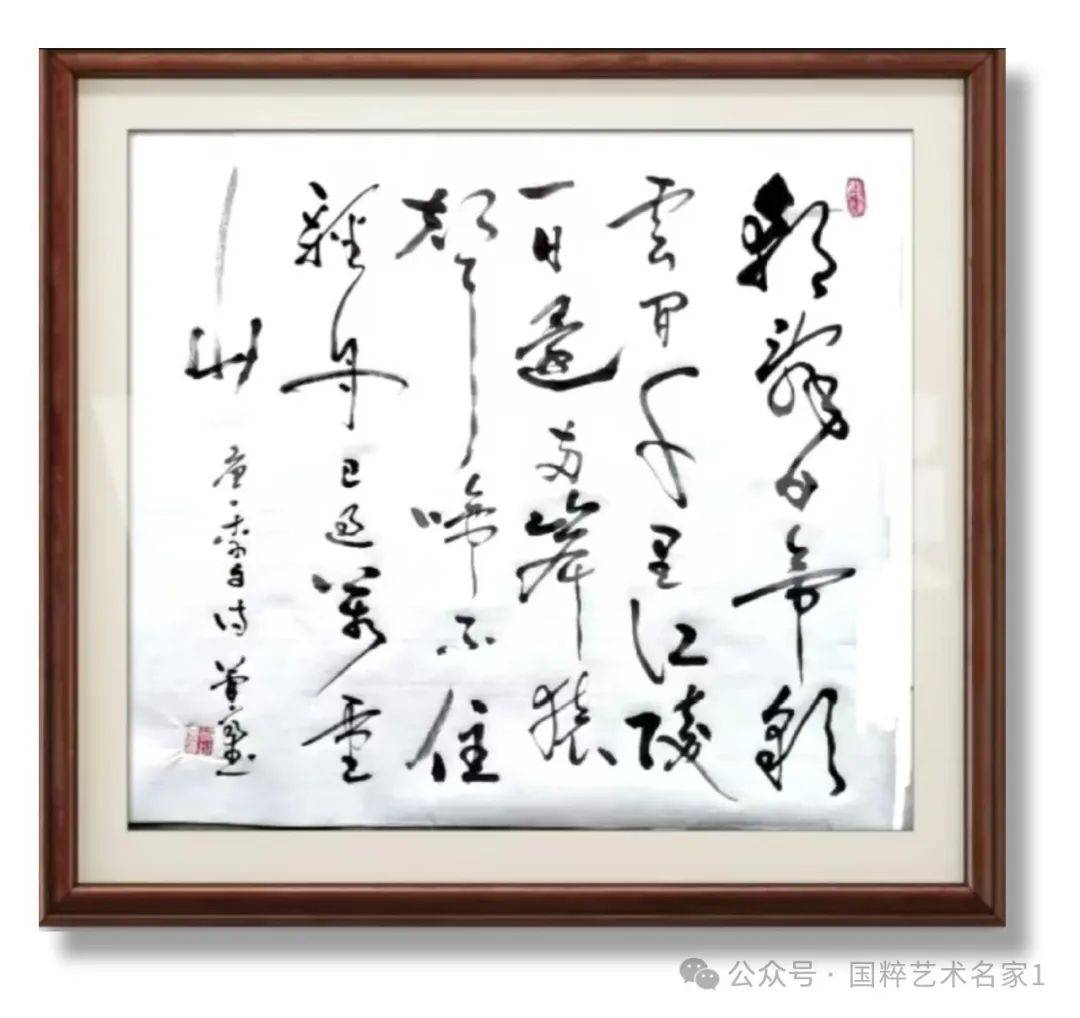 朝辭白帝彩
雲间千里江陵
一日還两岸猿
聲啼不住
輕舟已过萬重
山
唐·李白诗
公众号·国粹艺术名家1